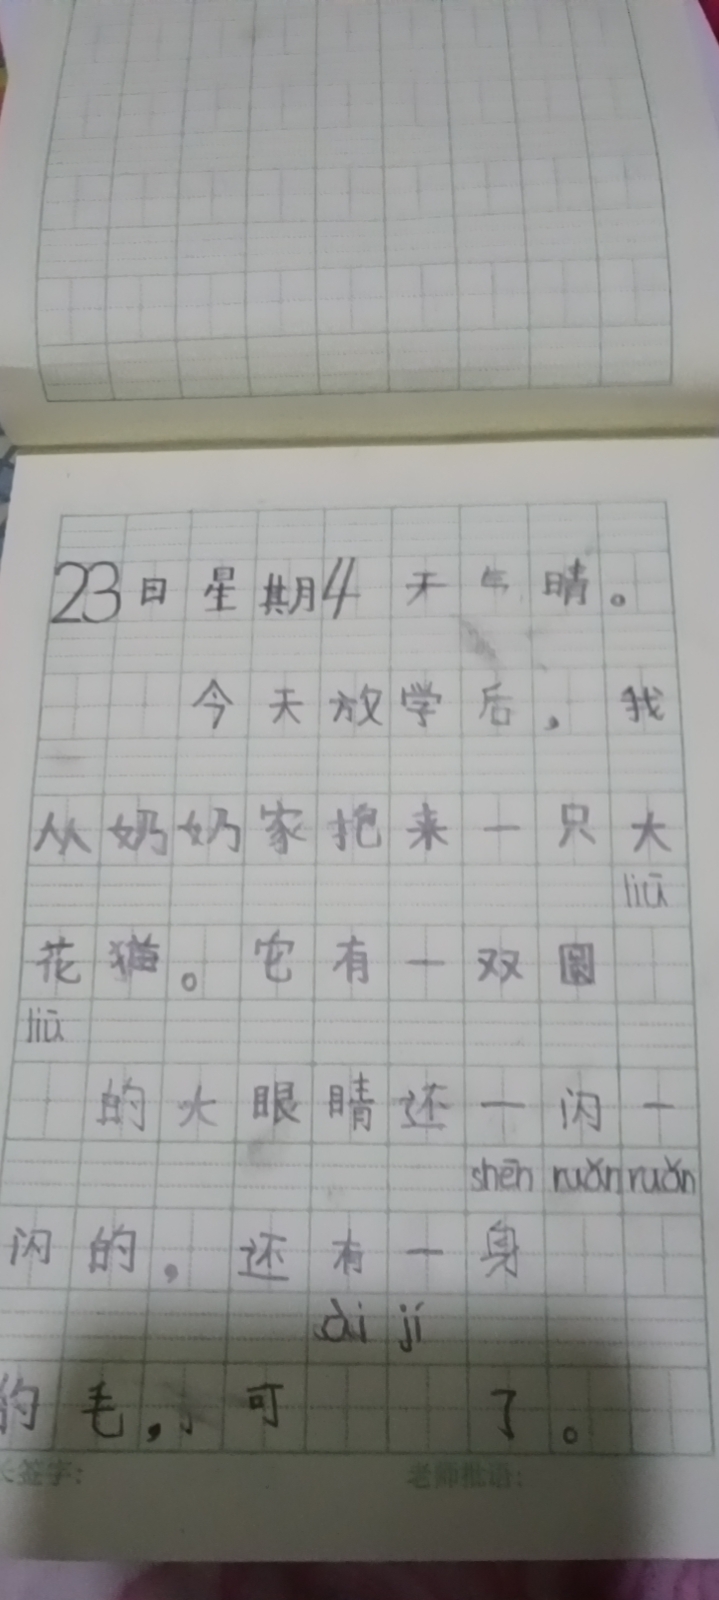 23日星期4天气晴。
今天放学后，我
从奶奶家抱来一只大
liū
花猫。它有一双圆
liū
的大眼睛还一闪一
shēn ruǎn ruǎn
闪的，还有一身
ài jí
的毛，可 了。
长签字： 老师批语：